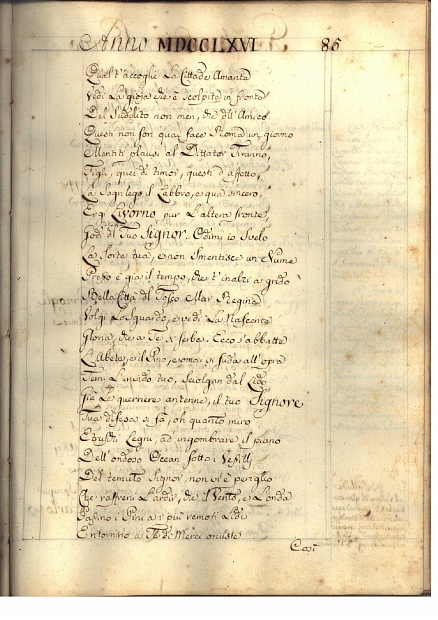 Anno MDCCLXVI 85
Qual t'accoglie La Cittade Amanta
Vedi La gioja che è scolpita in fronta
Del Suddito non men, che dell'Amico.
Questi non son quai face Roma un giorno
Mentiti plausi al Dittator Tiranno,
Figli, quei di timor, questi d'affetto,
Là sagrilego il Labbro, e qua sincero,
Ergi Livorno pur L'altera fronte,
Godi del Tuo Signor. Odimi io svelo
La sorte tua, e non smentisce un Nume
Presso è già il tempo, che t'inalzi a grido
Bella Città del Tosco Mar Regina
Volgi Lo Sguardo, e vedi La Nascente
Gloria, che a Te si serba. Ecco s'abbatte
L'Abeto, e il Pino, e omai si suda all'opra
Temi L'invido tuo, sciolgan dal Lido
Già Le guerriere antenne, il tuo Signore
Tua difesa si fà, oh quanto miro
Etruschi Legni, ad ingombrare il piano
Dell'ondoso Ocean sotto i Vessilli
Del temuto Signor, non vi è periglio
Che raffreni L'ardir, che il Vento, e L'onda
Passino i Pini ai più remoti Lidi
E tornino a Te di Merci onuste
Così